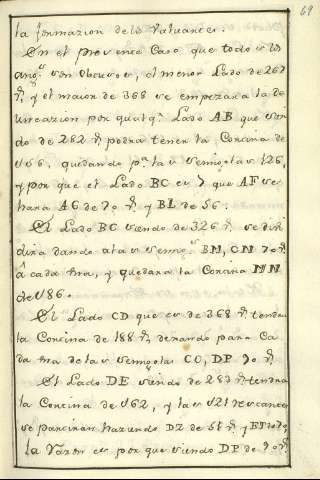 69
la formazion de los Valuartes.
En el presente Caso que todos los
ang.s son obtusos, el menor Lado de 267
y el maior de 368 se empezara la de
lineazion por qualq.a Lado AB que sien
do de 282 podra tener la Cortina de
156, quedando p.a las semigolas 126,
y por que el Lado BC es > que AF se
hara AG de 70 y BL de 56.
El Lado BC siendo de 326 se divi
dira dando a las semig.s BM, CN 70
â cada una, y quedara la Cortina MN
de 186.
El Lado CD que es de 368 tendra
la Cortina de 188 dexando para Ca
da una de las semigolas CO, DP 90
El Lado DE siendo de 283 tendra
la Cortina de 162, y las 121 restantes
se partiran haziendo DZ de 51 y ET 70
la Razon es por que siendo DP de 90